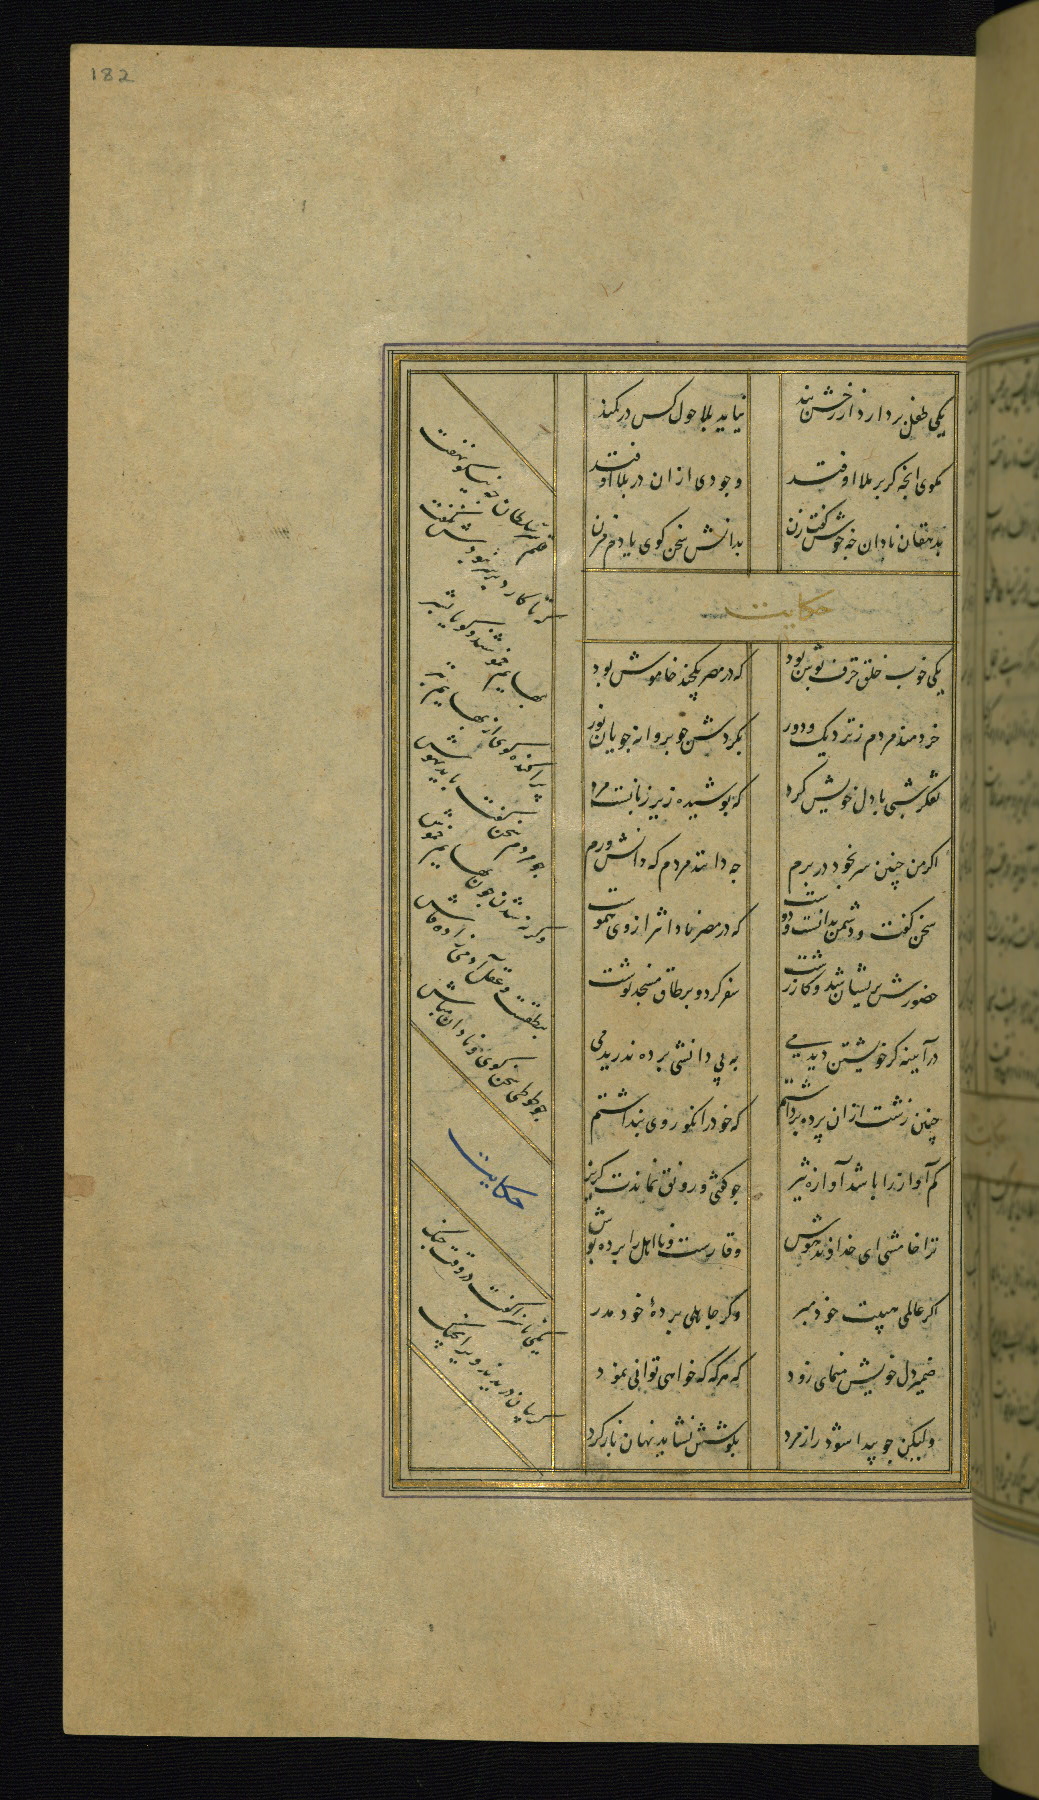 182
یکی طفل بردارد از رخش بند
نیاید بلاحول کس در کمند
مگوی انچه گر بر ملا اوفتد
وجودی ازان در بلا اوفتد
بدهقان نادان چه خوش گفت زن
بدانش سخن کوی یا دم مزن
حکایت
یکی خوب خلق خرف پوش بود
که در مصر یکچند خاموش بود
خردمند مردم ز نزدیک و دور
بکردش جو پروانه جویان نور
تفکر شبی با دل خویش کرد
که پوشیده زیر زبانست مرد
اکر من چنین سر بخود در برم
جه دانند مردم که دانش ورم
سخن کفت و دشمن بدانست و دوست
که در مصر نادانتر از وی هموست
حضورش پریشان شد و کار زشت
سفر کرد و بر طاق مسجد نوشت
در آیینه کر خویشتن دیدمی
به بی دانشی پرده ندریدمی
چنین زشت ازان پرده برداشتم
که خود را نکو روی پنداشتم
کم آواز را باشد آوازه تیز
جو کفتی و رونق نماندت کریز
ترا خامشی ای خداوند هوش
وقارست و نااهل را پرده پوش
اکر عالمی هیبت خود مبر
وکر جاهلی پردهٔ خود مدر
ضمیر دل خویش منمای زود
که هر که که خواهی توانی نمود
ولیکن جو پیدا شود راز مرد
بکوشش نشاید نهان باز کرد
قلم سر سلطان چه نیکو نهفت
که تا کارد بر سر نبودش نکفت
بهایم خموشند و کویا بشر
پراکنده کوی از بهایم بتر
جو مردم سخن کفت باید بهوش
وکرنه شدن جون بهایم خموش
بنطقست و عقل آدمی زاده فاش
جو طوطی سخن کوی و نادان مباش
حکایت
یکی ناسزا کفت در وقت جنک
کریبان دریدند ویرا بجنک